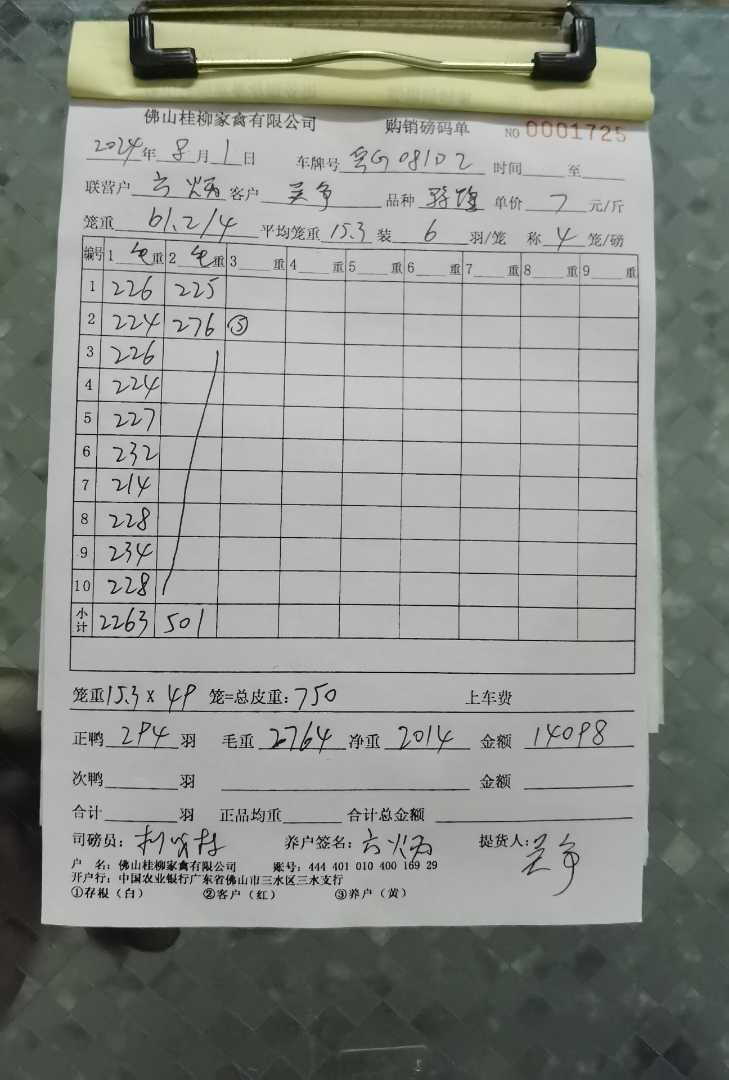 佛山桂柳家禽有限公司 购销磅码单 NO 0001725
2024年 8月 1日 车牌号 粤G08102 时间 至
联营户 客户 吴争 品种 单价 7 元/斤
笼重 61.2/4 平均笼重 15.3 装 6 羽/笼 称 4 笼/磅
编号 1 毛重 2 毛重 3 重 4 重 5 重 6 重 7 重 8 重 9 重
1 226 225
2 224 276 ⑤
3 226
4 224
5 227
6 232
7 214
8 228
9 234
10 228
小计 2263 501
笼重 15.3 x 49 笼=总皮重: 750 上车费
正鸭 294 羽 毛重 2764 净重 2014 金额 14098
次鸭 羽 金额
合计 羽 正品均重 合计总金额
司磅员: 养户签名: 提货人: 吴争
户 名: 佛山桂柳家禽有限公司 账号: 444 401 010 400 169 29
开户行: 中国农业银行广东省佛山市三水区三水支行
①存根(白) ②客户(红) ③养户(黄)